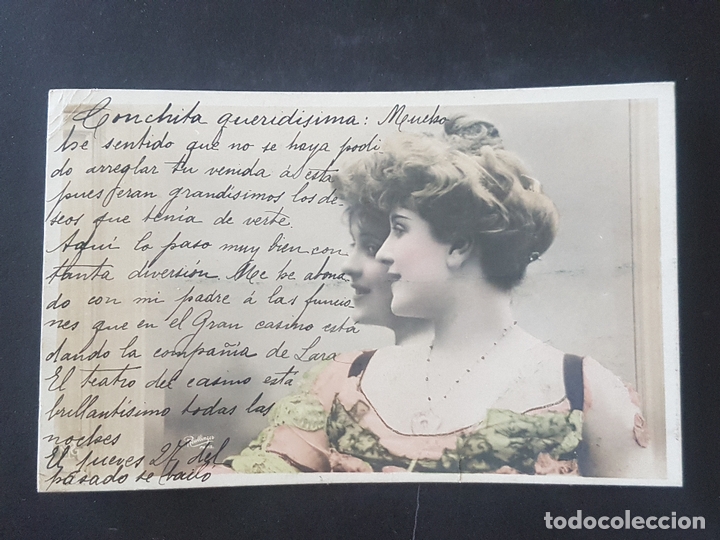 Conchita queridisima: Mucho
he sentido que no se haya podi
do arreglar tu venida á esta
pues eran grandísimos los de-
seos que tenía de verte.
Aquí lo paso muy bien con
tanta diversión. Me he abona
do con mi padre á las funcio
nes que en el Gran casino está
dando la compañía de Lara
El teatro del casino está
brillantísimo todas las
noches
El jueves 27 del
pasado se bailó
todocoleccion.net